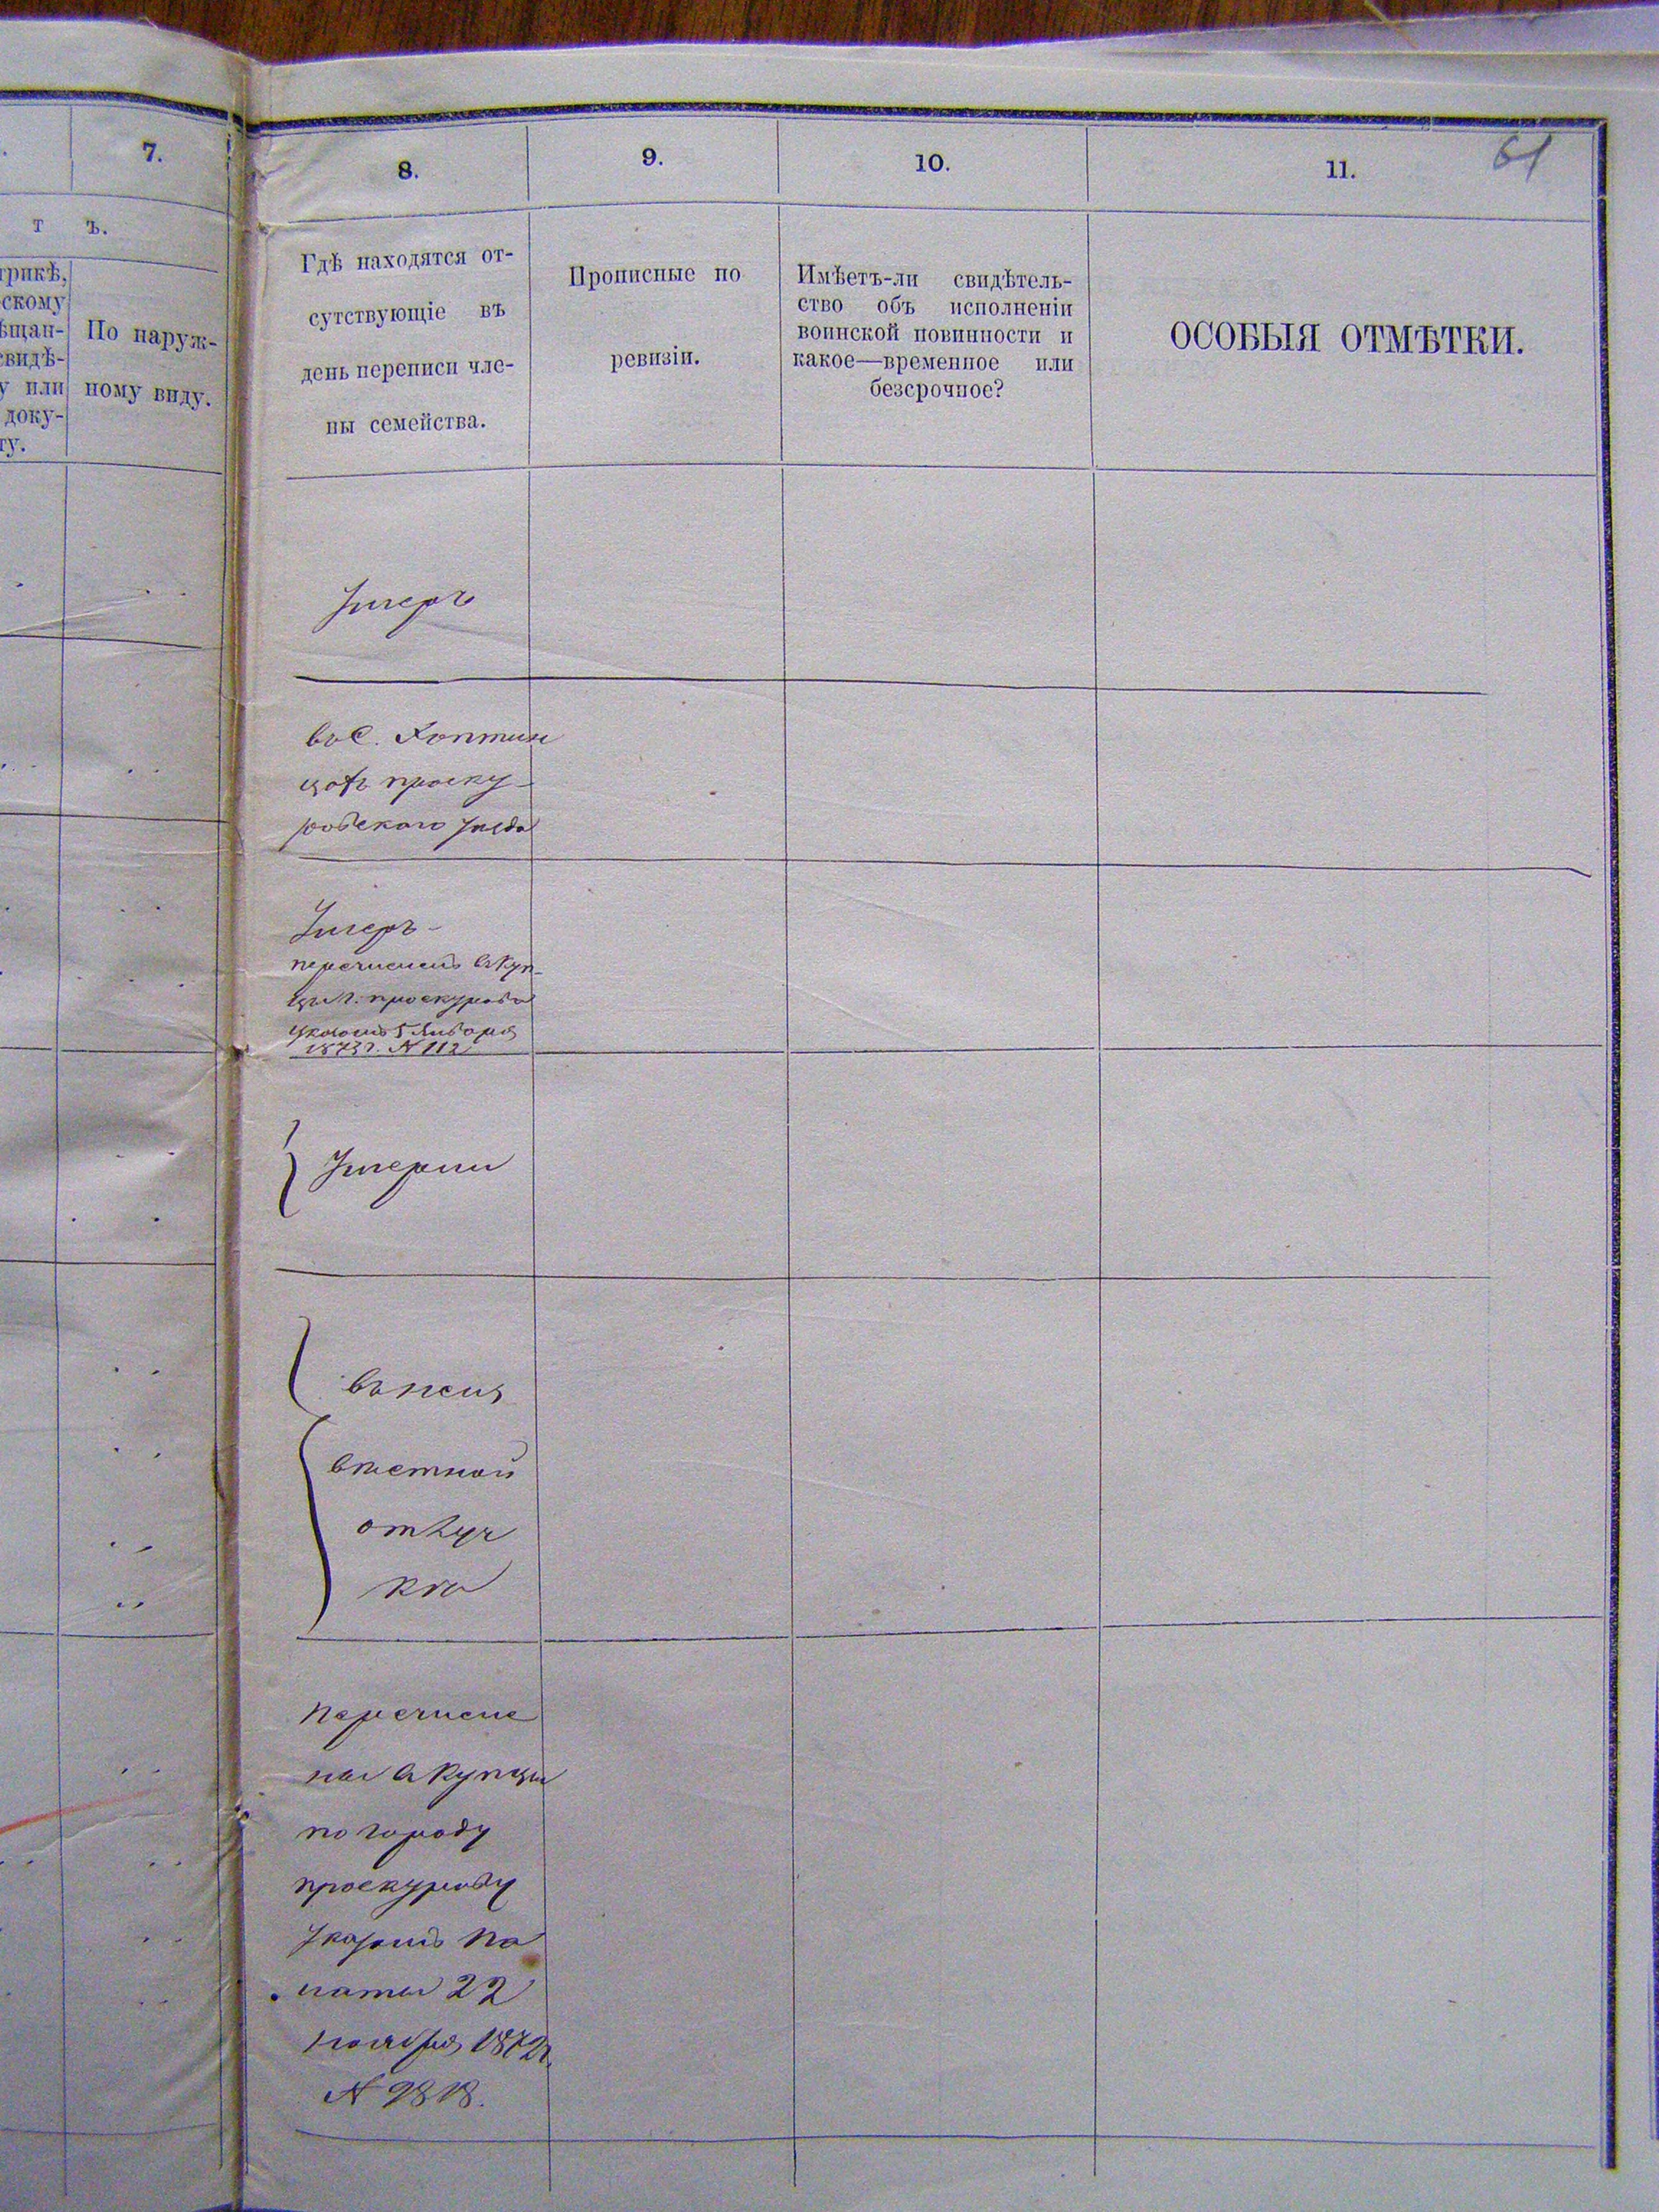 61
7.
8.
9.
10.
11.
т ъ.
трикѣ,
скому
ѣщан-
свидѣ-
у или
доку-
ту.
По наруж-
ному виду.
Гдѣ находятся от-
сутствующіе въ
день переписи чле-
ны семейства.
Прописные по
ревизіи.
Имѣетъ-ли свидѣтель-
ство объ исполненіи
воинской повинности и
какое—временное или
безсрочное?
ОСОБЫЯ ОТМѢТКИ.
Умеръ
въ С.
проску-
ровскаго уезда
Умеръ -
перечисленъ в куп-
цы г. проскурова
указомъ 5 Января
1873 г. N 112
Умерши
в местной
отлуч
ки
перечисле
ны в купцы
по городу
проскурову
Указомъ па
латы 22
ноября 1872 г.
N 9818.